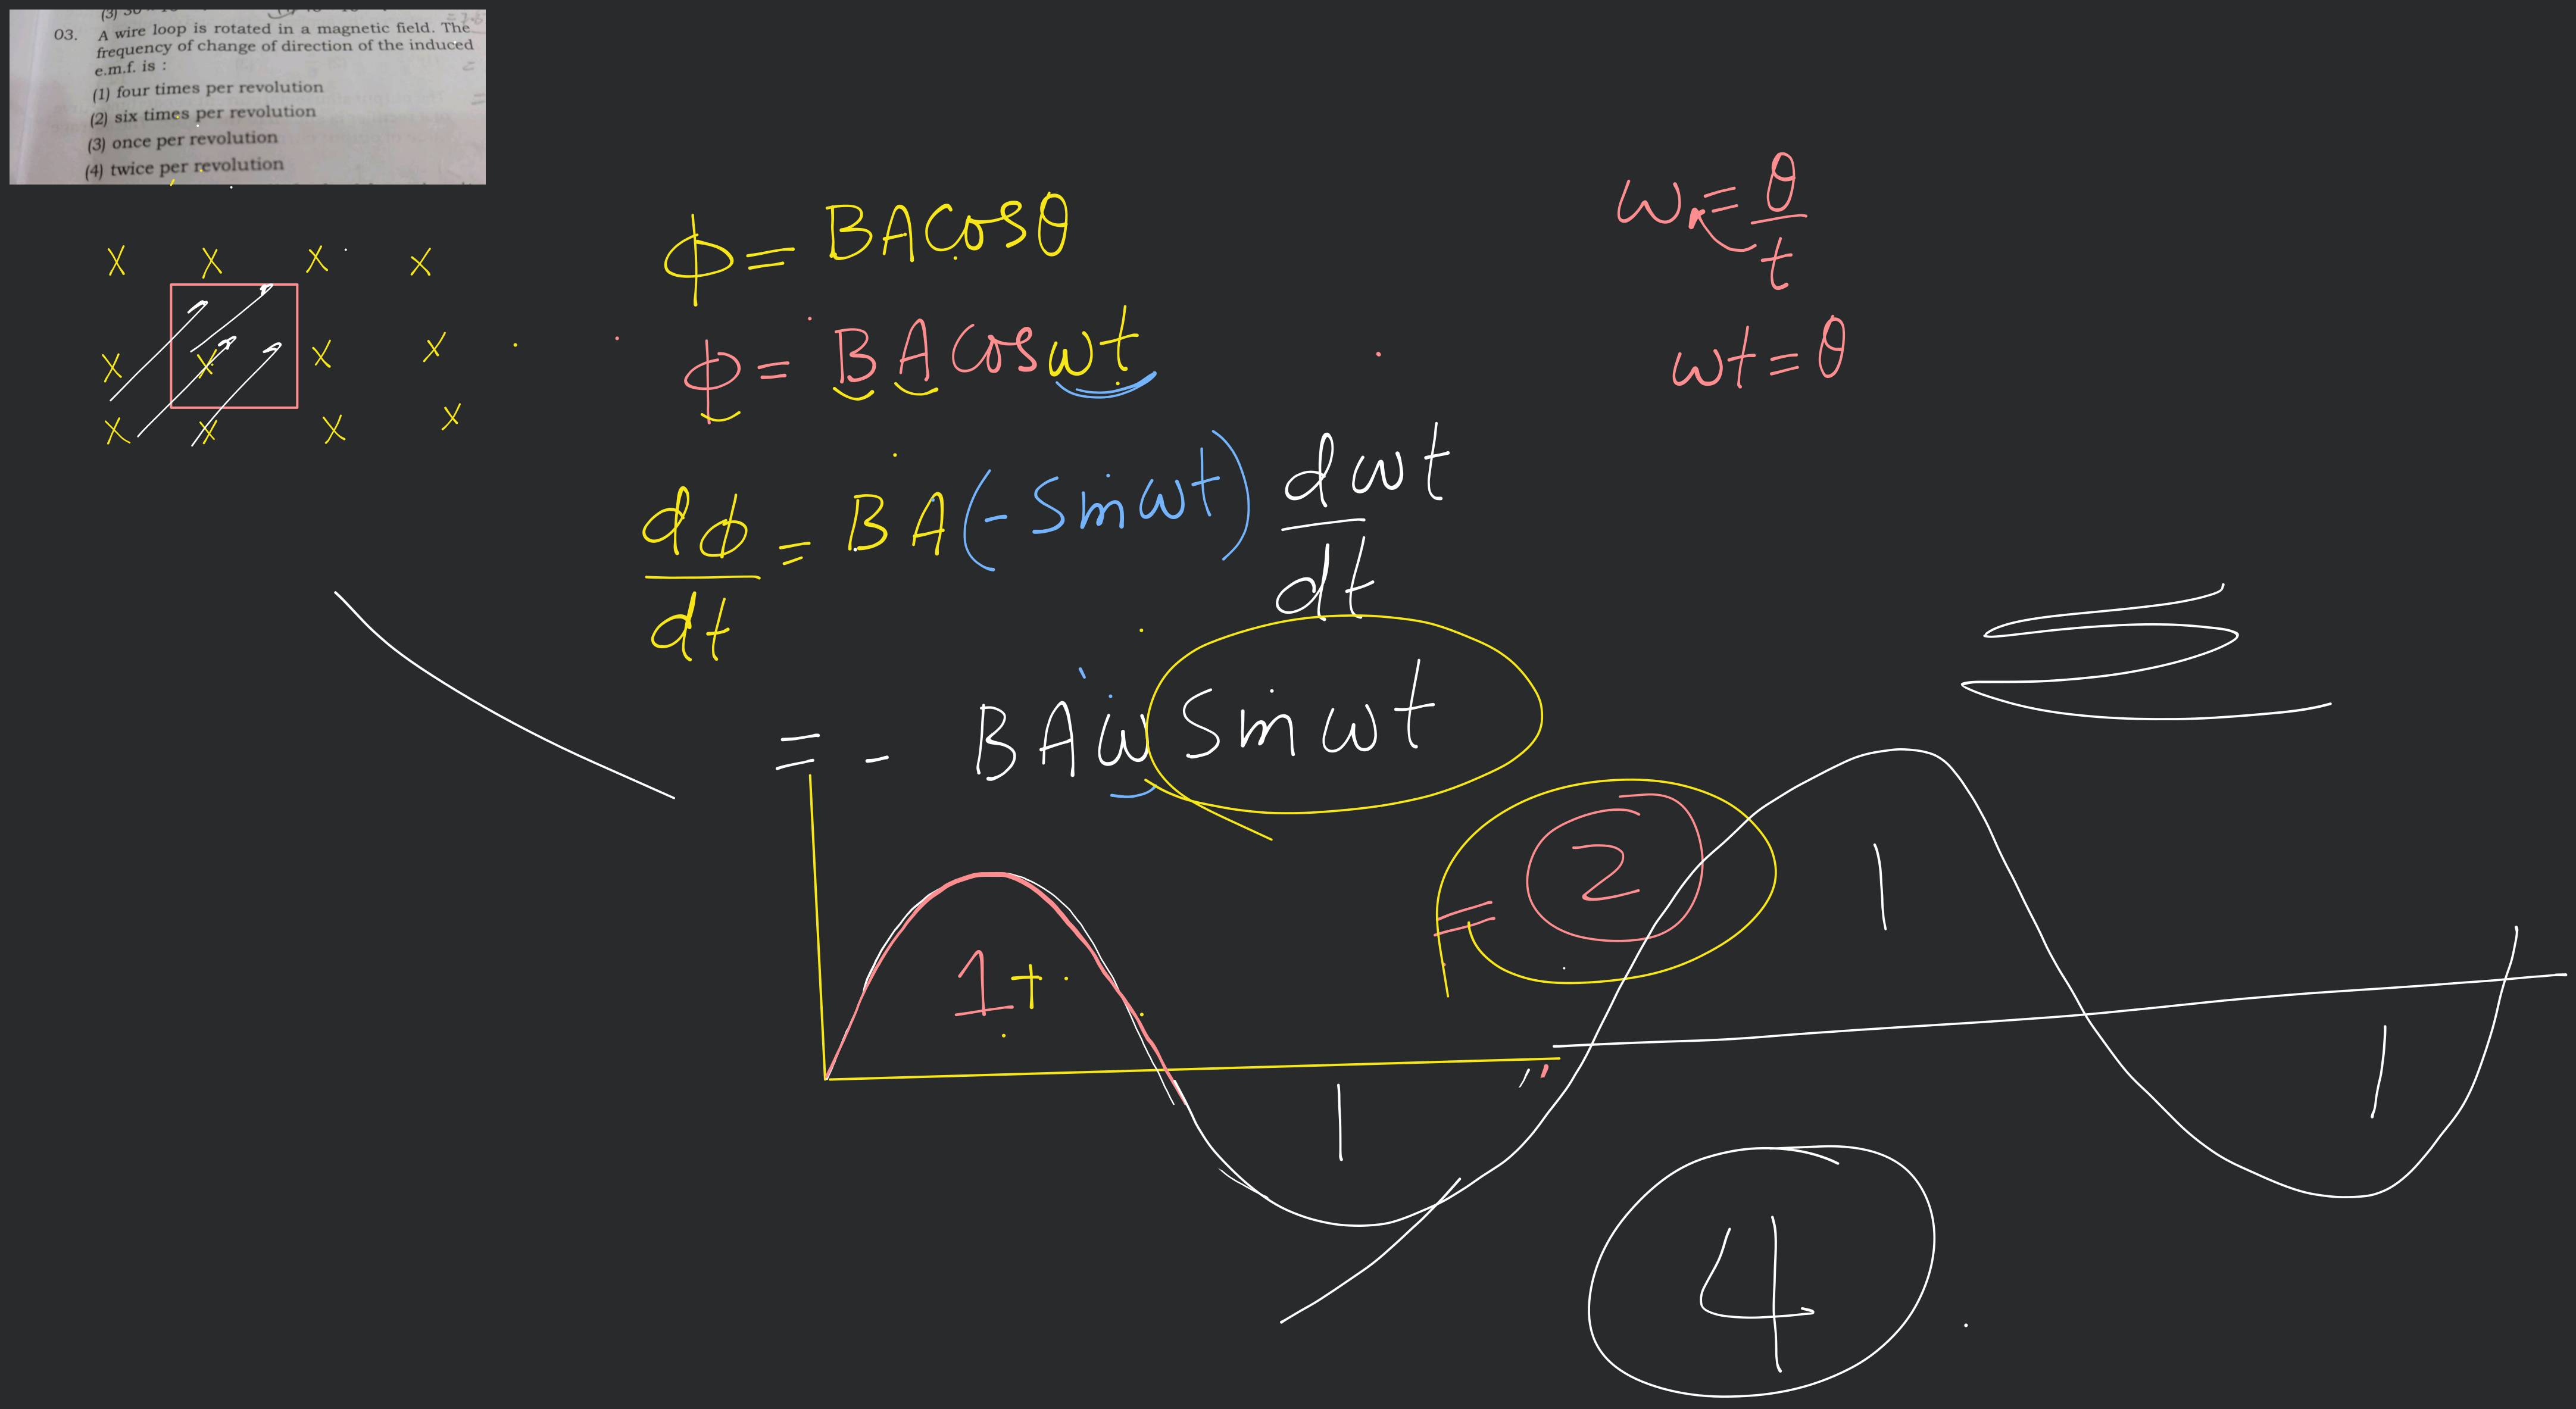 03. A wire loop is rotated in a magnetic field. The
frequency of change of direction of the induced
e.m.f. is :
(1) four times per revolution
(2) six times per revolution
(3) once per revolution
(4) twice per revolution
x x x x
x x x x
x x x x
ϕ = BA Cos θ
ω = θ/t
ϕ = BA Cos ωt
ωt = θ
dϕ/dt = BA (- Sin ωt) dωt/dt
= - BA ω Sin ωt
= 2
1 +
1
1
1
4